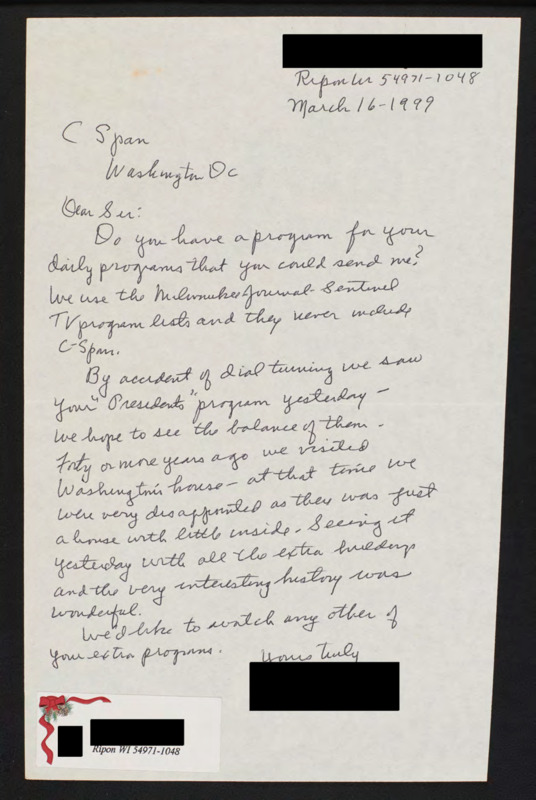 Ripon Wi 54971-1048
March 16-1999
C Span
Washington Dc
Dear Sir:
Do you have a program for your
daily programs that you could send me?
We use the Milwaukee Journal-Sentinel
TV program lists and they never include
C-Span.
By accident of dial turning we saw
your "Presidents" program yesterday -
We hope to see the balance of them.
Forty or more years ago we visited
Washington's house - at that time we
were very disappointed as there was just
a house with little inside. Seeing it
yesterday with all the extra buildings
and the very interesting history was
wonderful.
We'd like to watch any other of
your extra programs.
Yours truly
Ripon WI 54971-1048